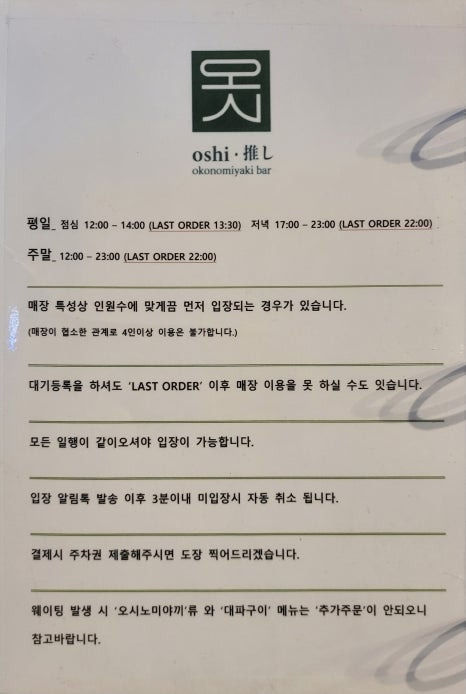 오시
oshi · 推し
okonomiyaki bar
평일_ 점심 12:00 – 14:00 (LAST ORDER 13:30) 저녁 17:00 – 23:00 (LAST ORDER 22:00)
주말_ 12:00 – 23:00 (LAST ORDER 22:00)
매장 특성상 인원수에 맞게끔 먼저 입장되는 경우가 있습니다.
(매장이 협소한 관계로 4인이상 이용은 불가합니다.)
대기등록을 하셔도 'LAST ORDER' 이후 매장 이용을 못 하실 수도 잇습니다.
모든 일행이 같이오셔야 입장이 가능합니다.
입장 알림톡 발송 이후 3분이내 미입장시 자동 취소 됩니다.
결제시 주차권 제출해주시면 도장 찍어드리겠습니다.
웨이팅 발생 시 '오시노미야끼'류 와 '대파구이' 메뉴는 '추가주문'이 안되오니
참고바랍니다.